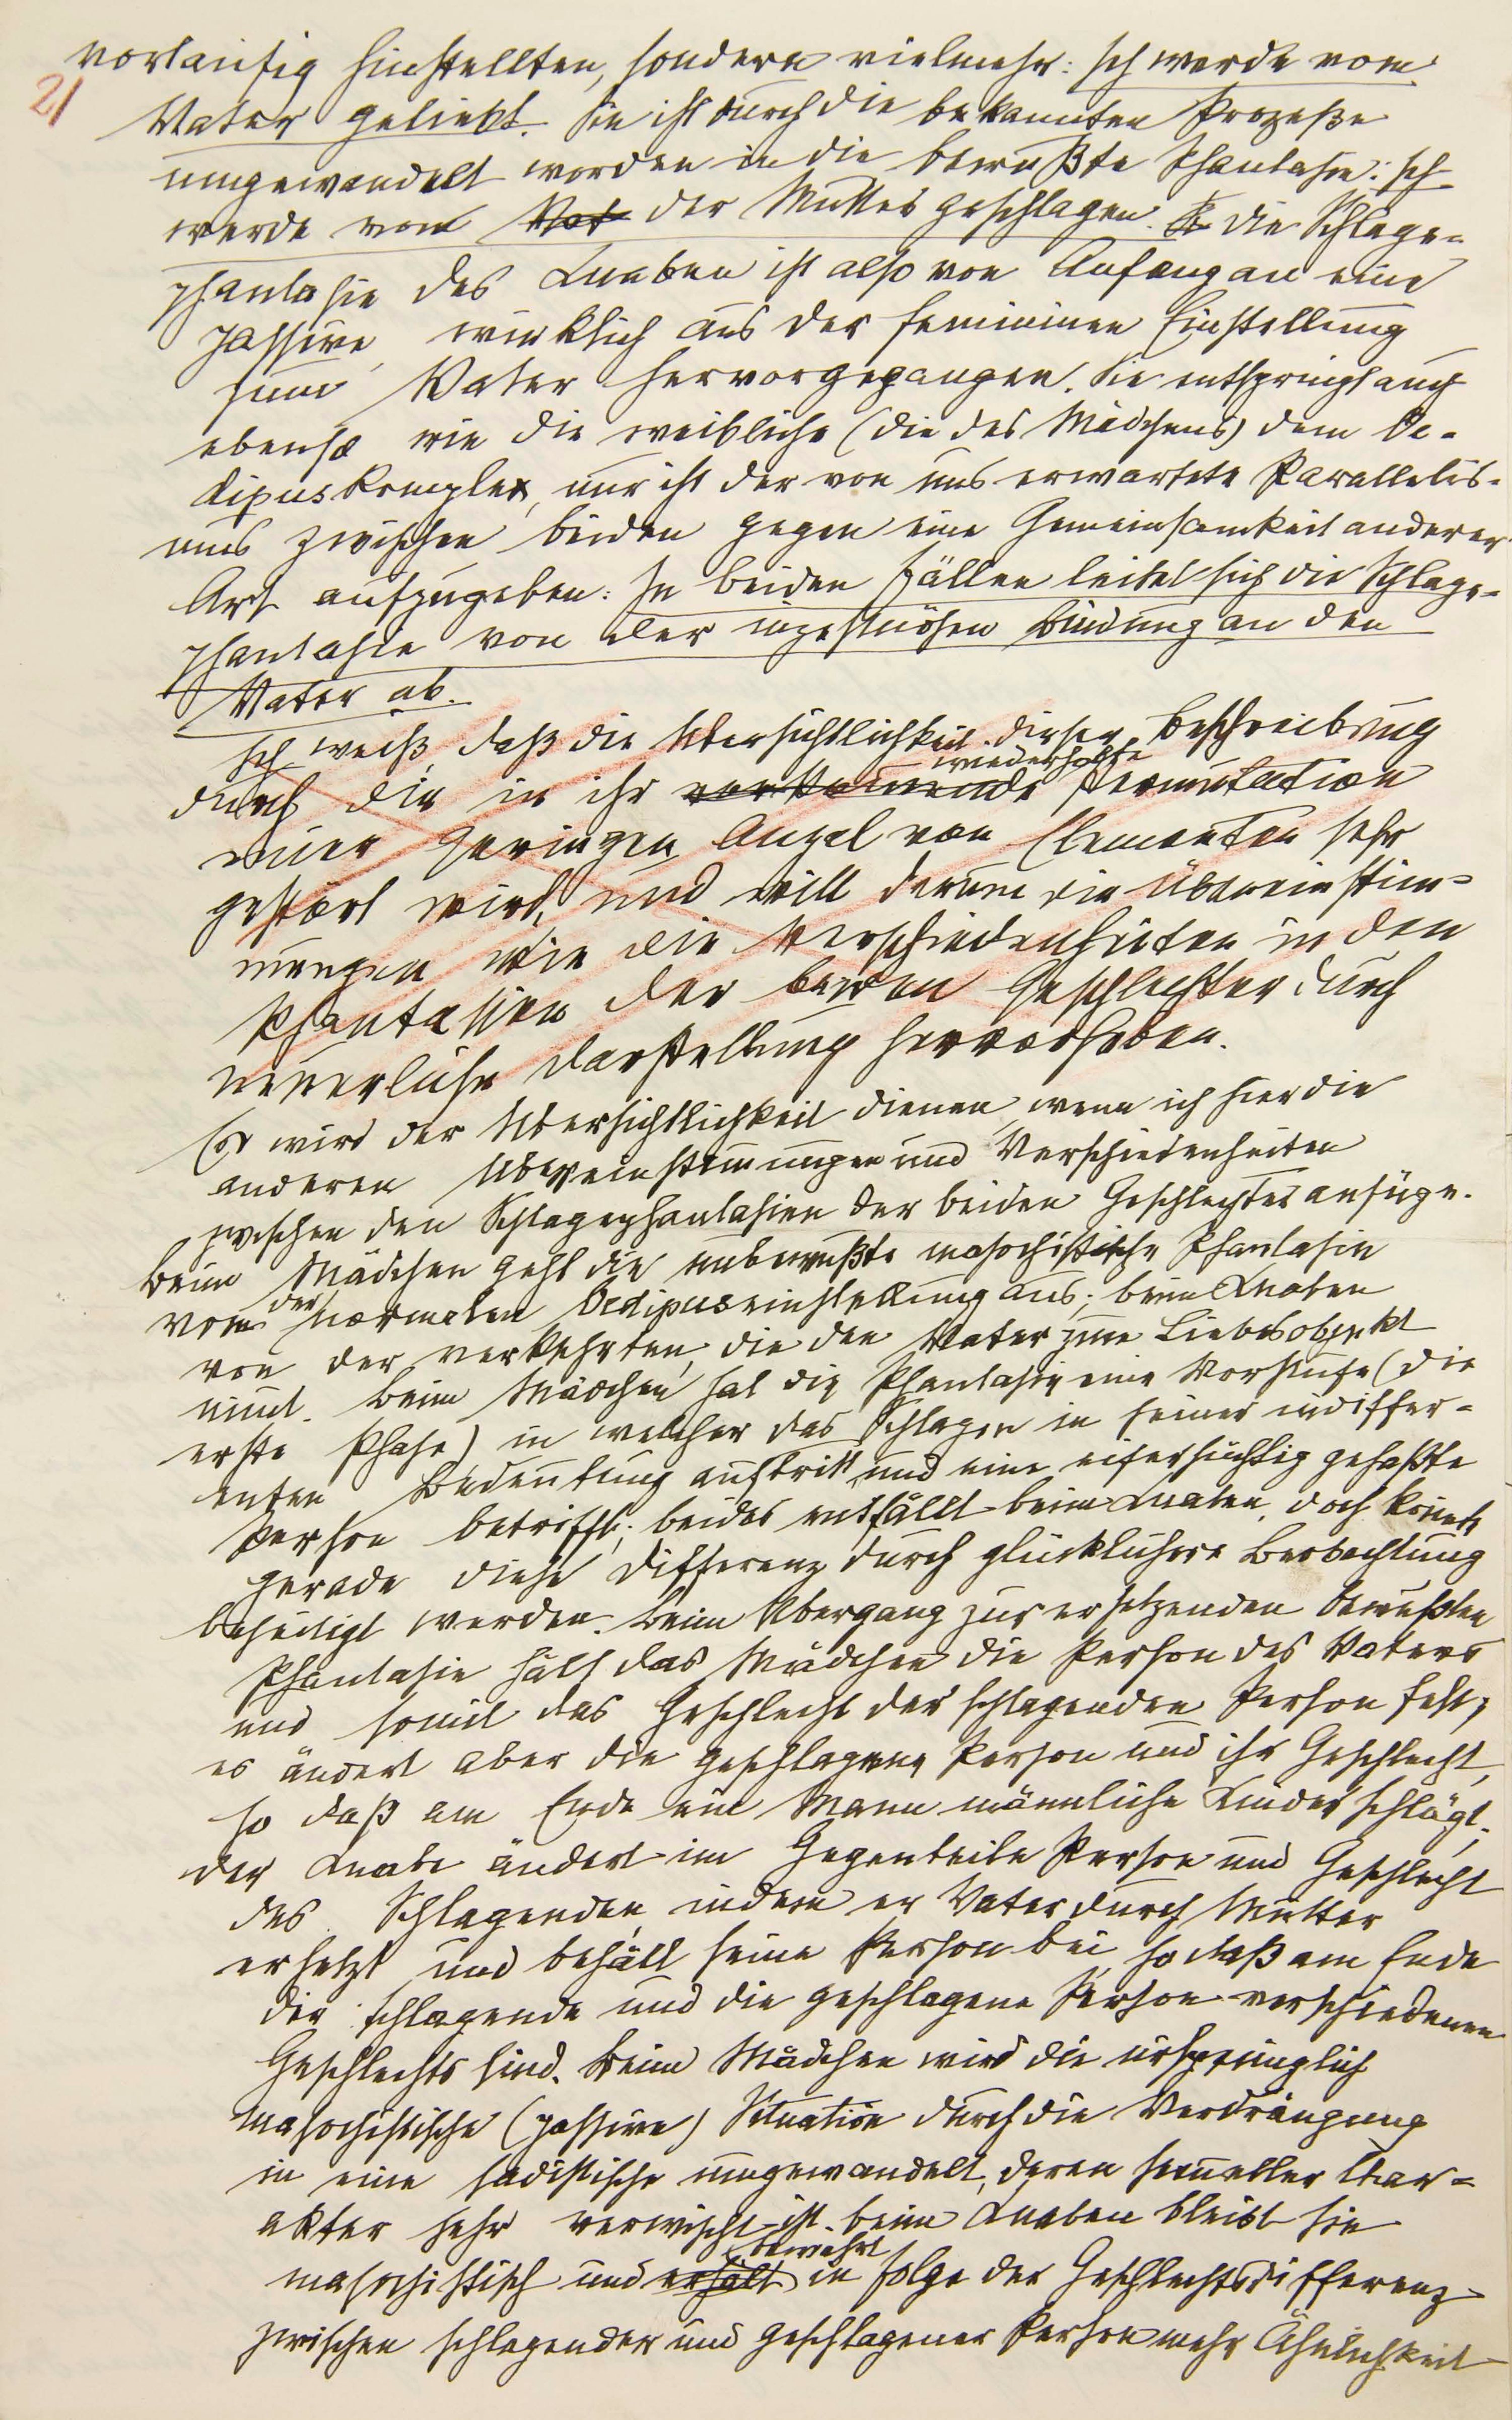 21
vorläufig hinstellten, sondern vielmehr: Ich werde vom
Vater geliebt. Sie ist durch die bekannten Prozeße
umgewandelt worden in die bewußte Phantasie: Ich
werde von Vat der Mutter geschlagen. Die Schlage-
phantasie des Knaben ist also von Anfang an eine
passive, wirklich aus der femininen Einstellung
zum Vater hervorgegangen. Sie entspringt auch
ebenso wie die weibliche (die des Mädchens) dem Oe-
dipuskomplex, nur ist der von uns erwartete Parallelis-
mus zwischen beiden gegen eine Gemeinsamkeit anderer
Art aufzugeben: In beiden Fällen leitet sich die Schlage-
phantasie von der inzestuösen Bindung an den
Vater ab.
Ich weiß, daß die Übersichtlichkeit dieser Beschreibung
wiederholte
durch die in ihr vorkommende Permutation
einer geringen Anzal von Elementen sehr
gestört wird, und will darum die Übereinstim-
mungen wie die Verschiedenheiten in den
Phantasien der beiden Geschlechter durch
neuerliche Darstellung hervorheben.
Es wird der Übersichtlichkeit dienen, wenn ich hier die
anderen Übereinstimmungen und Verschiedenheiten
zwischen den Schlagephantasien der beiden Geschlechter anfüge.
Beim Mädchen geht die unbewußte masochistische Phantasie
von der normalen Oedipuseinstellung aus; beim Knaben
von der verkehrten, die den Vater zum Liebesobjekt
nimt. Beim Mädchen hat die Phantasie eine Vorstufe (die
erste Phase) in welcher das Schlagen in seiner indiffer-
enten Bedeutung auftritt und eine eifersüchtig gehaßte
Person betrifft; beides entfällt beim Knaben, doch könnte
gerade diese Differenz durch glücklichere Beobachtung
beseitigt werden. Beim Übergang zur ersetzenden bewußten
Phantasie hält das Mädchen die Person des Vaters
und somit das Geschlecht der schlagenden Person fest;
es ändert aber die geschlagene Person und ihr Geschlecht,
so daß am Ende ein Mann männliche Kinder schlägt;
der Knabe ändert im Gegenteile Person und Geschlecht
des Schlagenden, indem er Vater durch Mutter
ersetzt und behält seine Person bei, so daß am Ende
der schlagende und die geschlagene Person verschiedenen
Geschlechts sind. Beim Mädchen wird die ursprünglich
masochistische (passive) Situation durch die Verdrängung
in eine sadistische umgewandelt, deren sexueller Char-
akter sehr verwischt ist, beim Knaben bleibt sie
bewahrt
masochistisch und erhält in Folge der Geschlechtsdifferenz
zwischen schlagender und geschlagener Person mehr Ähnlichkeit